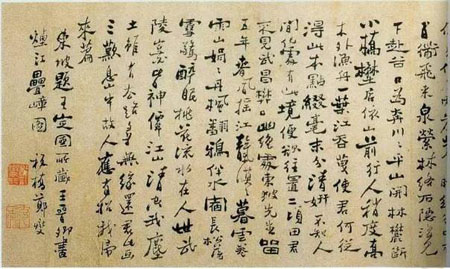 百衜飛來泉縈林絡石隱復見
下赴谷口為奔川川平山開林麓斷
小橋埜店依山前行人稍度喬
木外漁舟一葉江吞天使君何從
得此本點綴毫末分清妍不知人
間何處有此境便欲往置二頃田君
不見武昌樊口幽絕處東坡先生留
五年春風搖江天漠漠暮雲卷
雨山娟娟丹楓翻鴉伴水宿長松落
雪驚醉眠桃花流水在人世武
陵豈必皆神僊江山清空我塵
土雖有去路尋無緣還君此畫
三歎息山中故人應有招我歸
來篇
東坡題王定國所藏王晉卿畫
煙江疊嶂圖 板橋鄭燮